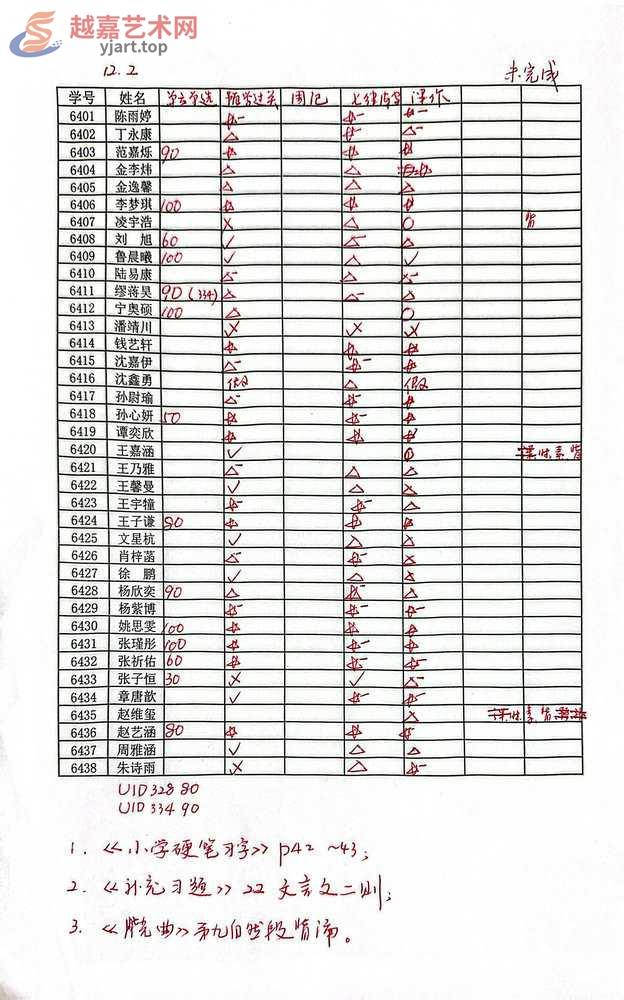 越嘉艺术网
yjart.top
12.2 未完成
学号 姓名 周记 课作
6401 陈雨婷
6402 丁永康
6403 范嘉烁 90
6404 金李炜
6405 金逸馨
6406 李梦琪 100
6407 凌宇浩 背
6408 刘旭 60
6409 鲁晨曦 100
6410 陆易康
6411 缪蒋昊 90(334)
6412 宁奥硕 100
6413 潘靖川
6414 钱艺轩
6415 沈嘉伊
6416 沈鑫勇 假 假
6417 孙尉瑜
6418 孙心妍 50
6419 谭奕欣
6420 王嘉涵
6421 王乃雅
6422 王馨曼
6423 王宇犝
6424 王子谦 80
6425 文星杭
6426 肖梓菡
6427 徐鹏
6428 杨欣奕 90
6429 杨紫博
6430 姚思雯 100
6431 张瑾彤 100
6432 张祈佑 60
6433 张子恒 30
6434 章唐歆
6435 赵维玺
6436 赵艺涵 80
6437 周雅涵
6438 朱诗雨
UID 328 80
UID 334 90
1. 《小学硬笔习字》P42 ~43;
2. 《补充习题》22 文言文二则;
3. 《 曲》第九自然段背诵。